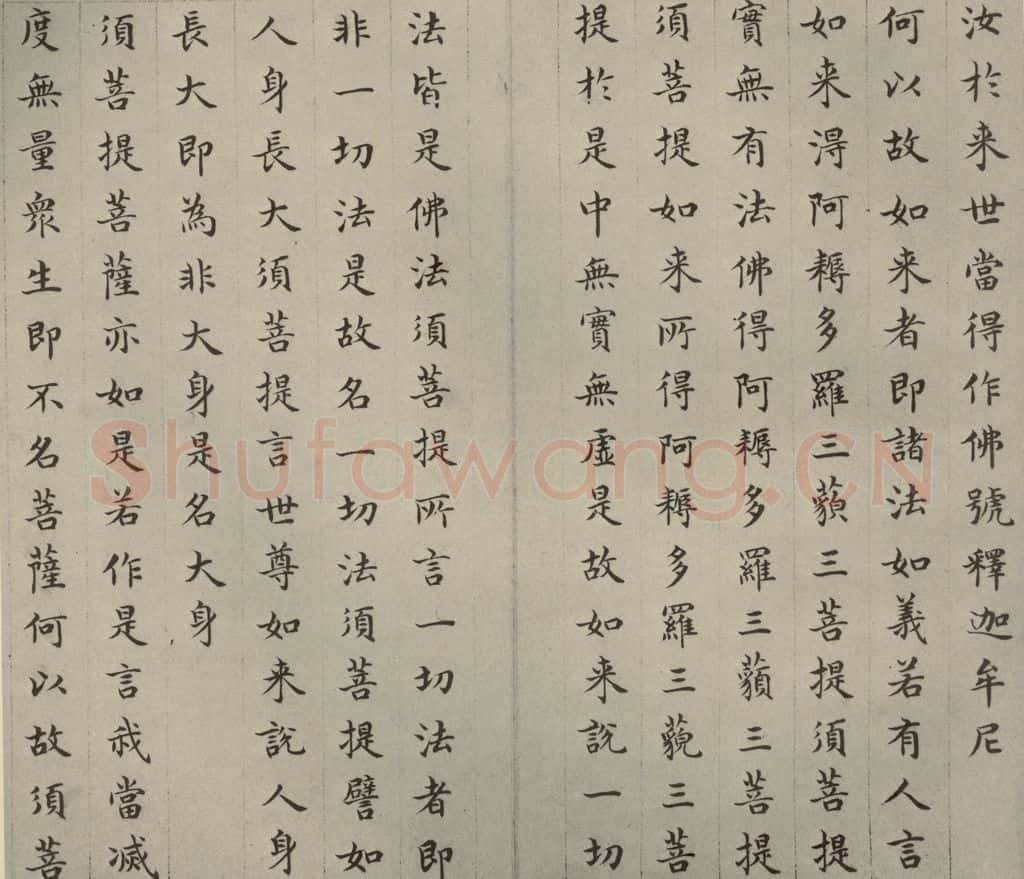 汝於来世當得作佛號釋迦牟尼
何以故如来者即諸法如義若有人言
如来淂阿耨多羅三藐三菩提須菩提
實無有法佛得阿耨多羅三藐三菩提
須菩提如来所得阿耨多羅三藐三菩
提於是中無實無虛是故如来說一切
法皆是佛法須菩提所言一切法者即
非一切法是故名一切法須菩提譬如
人身長大須菩提言世尊如来說人身
長大即為非大身是名大身
須菩提菩薩亦如是若作是言我當滅
度無量眾生即不名菩薩何以故須菩
Shufawang.CN